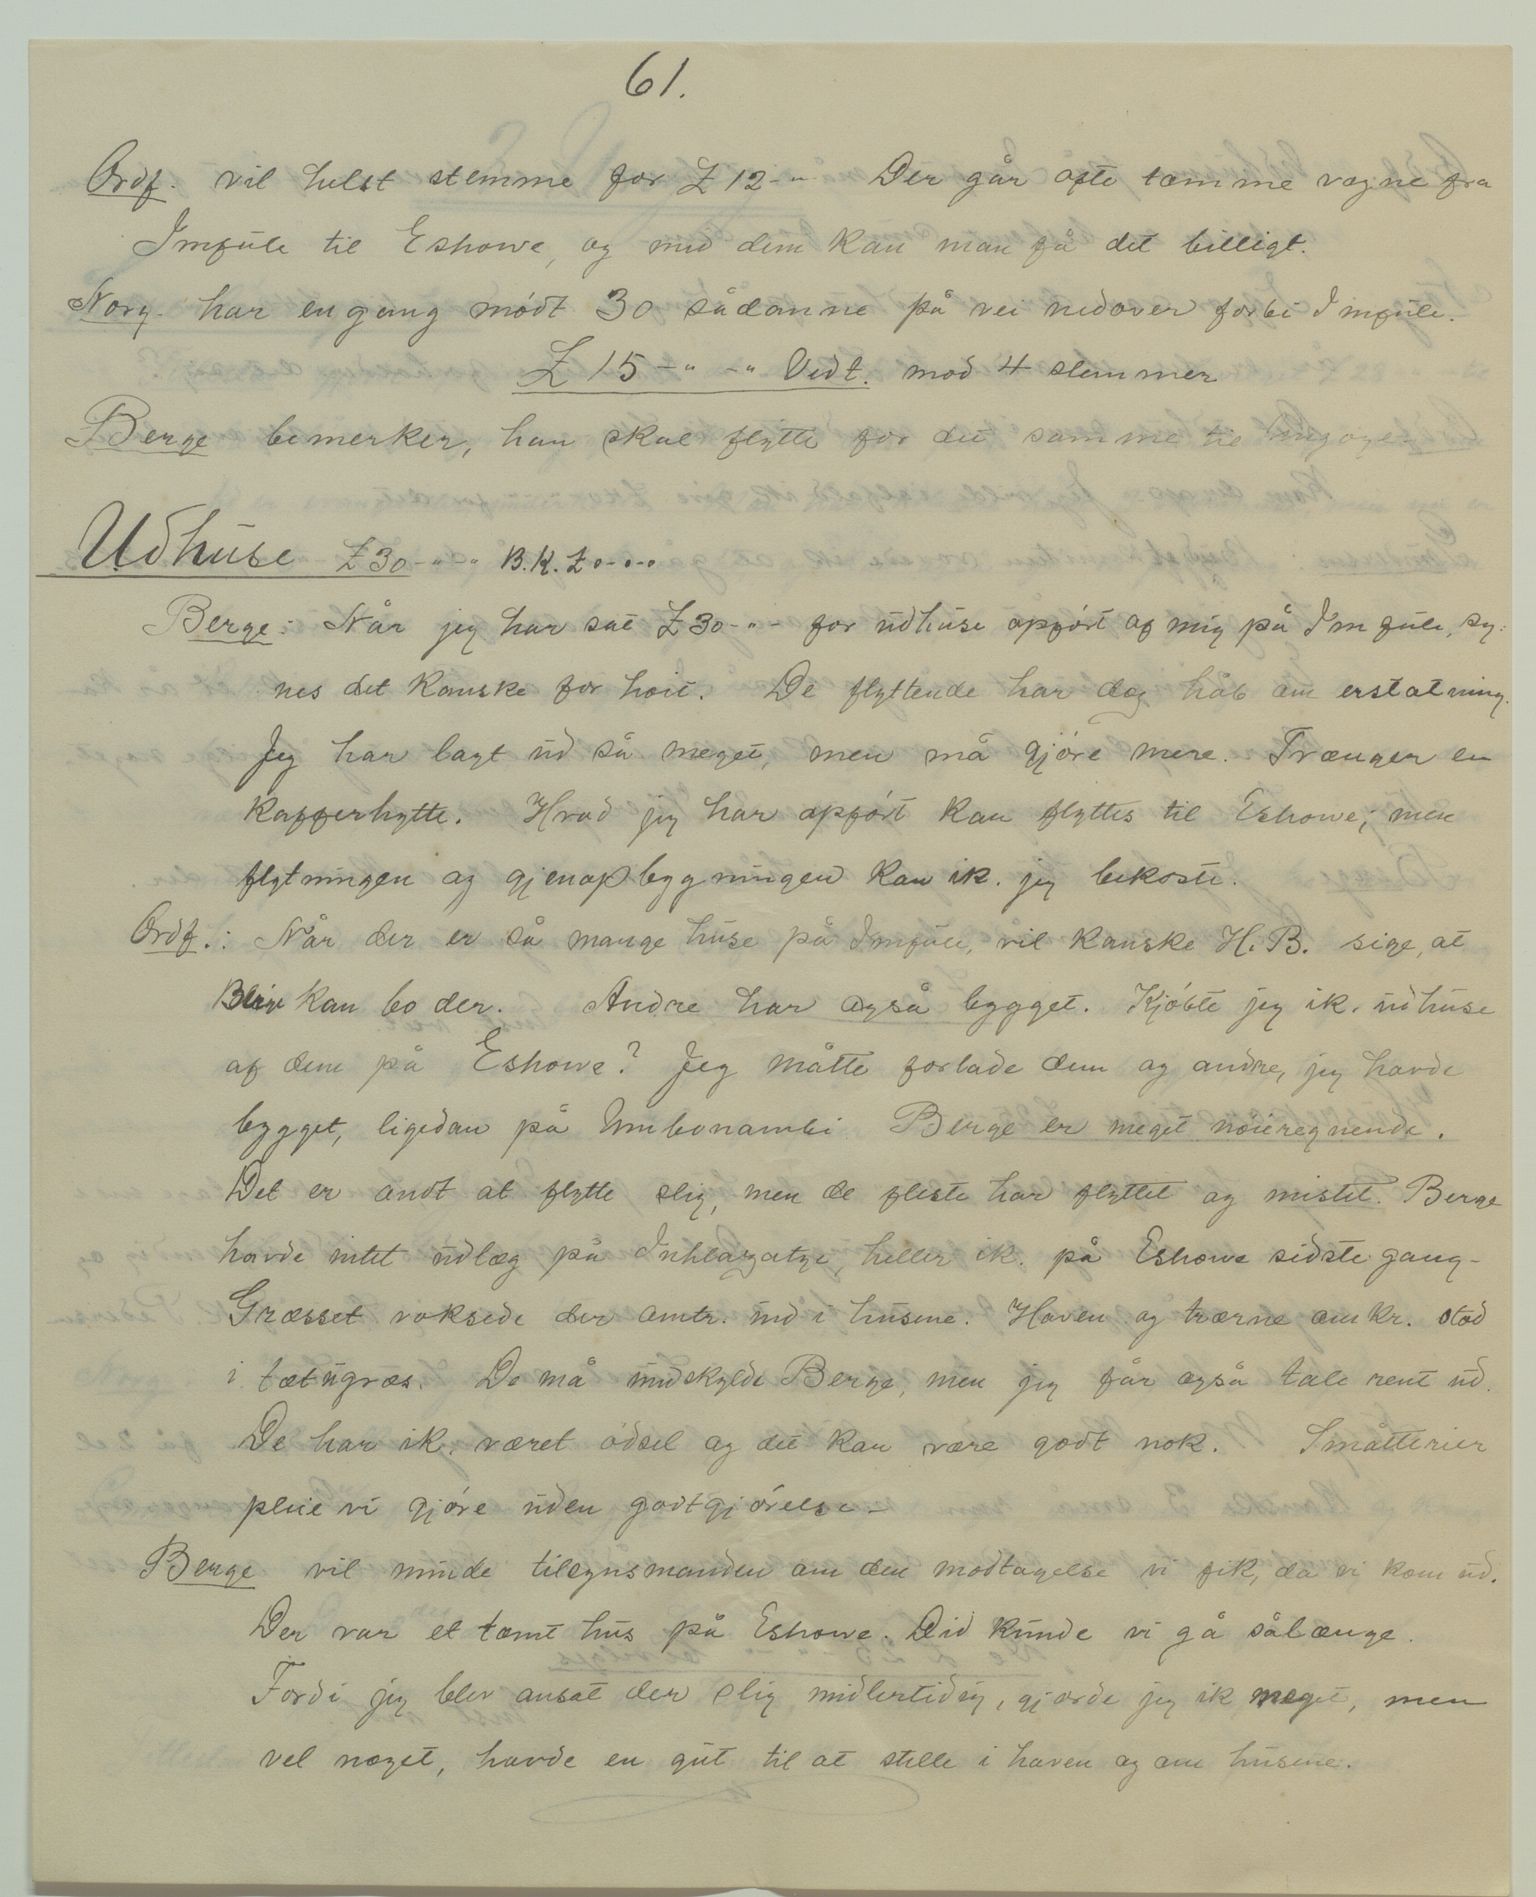 61.
Ordf. vil helst stemme for £ 12-" Der går ofte tomme vogne fra
Imfule til Eshowe, og med dem kan man få det billigt.
Norg. har engang mødt 30 sådanne på vei nedover forbi Imfule.
£ 15 -" -" Vedt. mod 4 stemmer
Berge bemerker, han skal flytte for det samme til
Udhuse £30-"-" B.K. £ "-"-"
Berge: Når jeg har sat £30-"- for udhuse opført af mig på Imfule, sy-
nes det kanske for høit. De flyttende har dog håb om erstatning.
Jeg har lagt ud så meget, men må gjøre mere. Trænger en
kafferhytte. Hvad jeg har opført kan flyttes til Eshowe; men
flytningen og gjenopbygningen kan ik. jeg bekoste.
Ordf.: Når der er så mange huse på Imfule, vil kanske H.B. sige, at
kan bo der. Andre har også bygget. Kjøbte jeg ik. udhuse
af dem på Eshowe? Jeg måtte forlade dem og andre, jeg havde
bygget, ligedan på Umbonambi. Berge er meget nøieregnende.
Det er ondt at flytte slig, men de fleste har flyttet og mistet. Berge
havde intet udlæg på Inhlazatye, heller ik. på Eshowe sidste gang-
Græsset voksede der omtr. ind i husene. Haven og trærne omkr. stod
i tæt ugræs. De må undskylde Berge, men jeg får også tale rent ud.
De har ik. været ødsel og det kan være godt nok. Småtterier
pleie vi gjøre uden godtgjørelse-
Berge vil minde tilsynsmanden om den modtagelse vi fik, da vi kom ud.
Der var et tomt hus på Eshowe. Did kunde vi gå sålænge.
Fordi jeg blev ansat der slig midlertidig, gjorde jeg ik meget, men
vel noget, havde en gut til at stelle i haven og om husene.